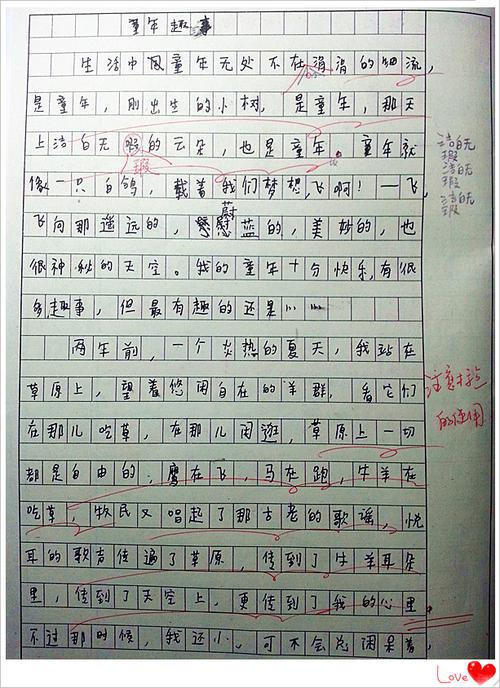 童年趣事
生活中童年无处不在涓涓的细流，
是童年，刚出生的小树，是童年，那天
上洁白无暇的云朵，也是童年。童年就
瑕
像一只白鸽，载着我们梦想，飞啊！一飞，
蔚
飞向那遥远的，蓝的，美妙的，也
很神秘的天空。我的童年十分快乐，有很
多趣事，但最有趣的还是……
两年前，一个炎热的夏天，我站在
草原上，望着悠闲自在的羊群，看它们
在那儿吃草，在那儿闲逛，草原上一切
都是自由的：鹰在飞，马在跑，牛羊在
吃草，牧民又唱起了那古老的歌谣，悦
耳的歌声传遍了草原，传到了牛羊耳朵
里，传到了天空上，更传到了我的心里。
不过那时候，我还小。可不会总闲呆着，
洁白无
瑕
洁白无
瑕
洁白无
瑕
注意标点
的使用
Love